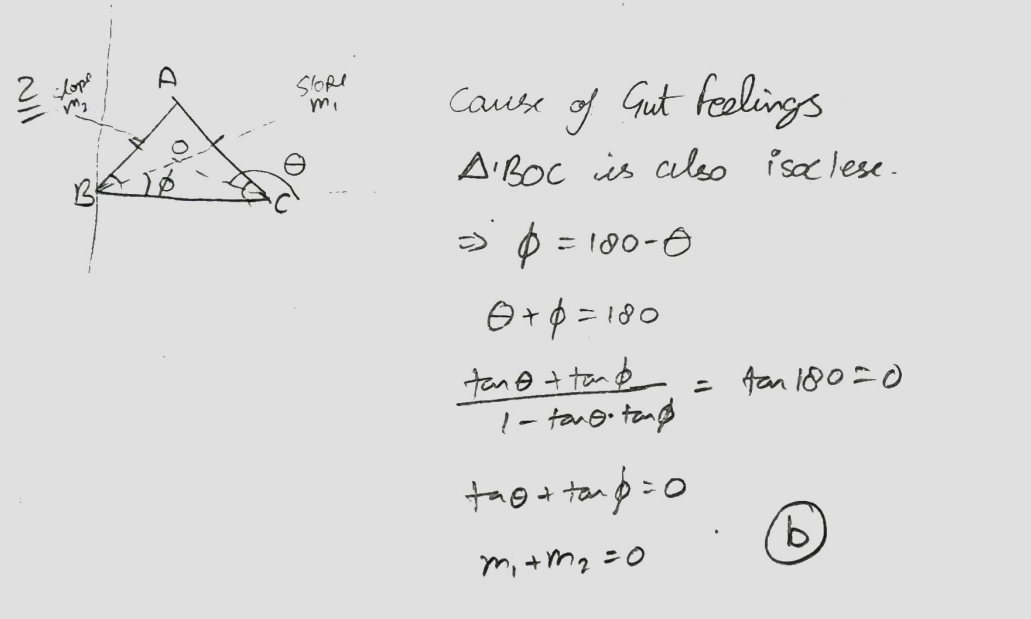 2
slope
m₂
A
slope
m₁
O
θ
B
ϕ
C
Cause of Gut feelings
Δ BOC is also isoclese.
⇒ ϕ = 180-θ
θ + ϕ = 180
tanθ + tanϕ / 1 - tanθ·tanϕ = tan 180 = 0
taθ + tanϕ = 0
m₁ + m₂ = 0
b